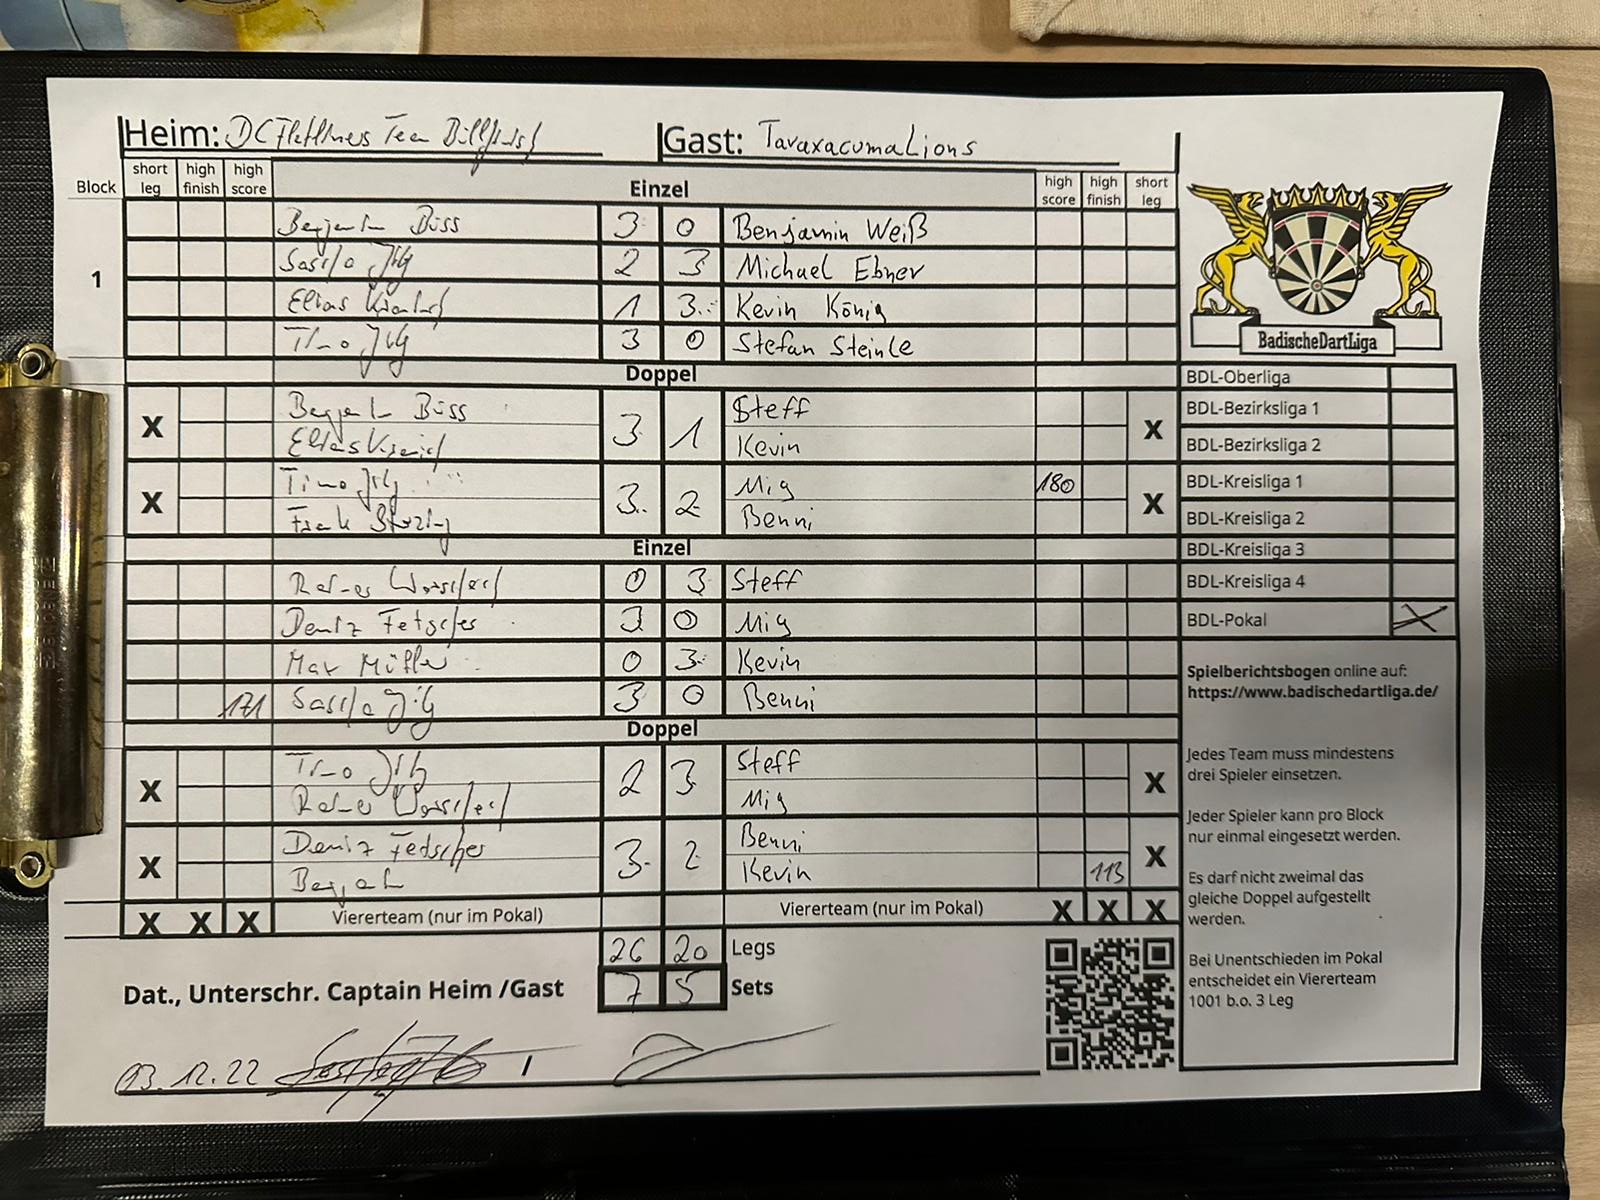 Heim: DC Team Gast: TavaxacumaLions
Block short leg high finish high score Einzel high score high finish short leg
1
Büss 3 0 Benjamin Weiß
Sascha Jilg 2 3 Michael Ebner
Elias 1 3 Kevin König
Timo Jilg 3 0 Stefan Steinle
Doppel
X Büss 3 1 Steff X
Elias Kevin
X Timo Jilg 3 2 Mig 180 X
Frank Benni
Einzel
0 3 Steff
Deniz Fetscher 3 0 Mig
Max Müller 0 3 Kevin
171 Sascha Jilg 3 0 Benni
Doppel
X Timo Jilg 2 3 Steff X
Mig
X Deniz Fetscher 3 2 Benni X
Kevin 113
X X X Viererteam (nur im Pokal) Viererteam (nur im Pokal) X X X
26 20 Legs
7 5 Sets
Dat., Unterschr. Captain Heim /Gast
03.12.22 /
BadischeDartLiga
BDL-Oberliga
BDL-Bezirksliga 1
BDL-Bezirksliga 2
BDL-Kreisliga 1
BDL-Kreisliga 2
BDL-Kreisliga 3
BDL-Kreisliga 4
BDL-Pokal X
Spielberichtsbogen online auf:
https://www.badischedartliga.de/
Jedes Team muss mindestens
drei Spieler einsetzen.
Jeder Spieler kann pro Block
nur einmal eingesetzt werden.
Es darf nicht zweimal das
gleiche Doppel aufgestellt
werden.
Bei Unentschieden im Pokal
entscheidet ein Viererteam
1001 b.o. 3 Leg